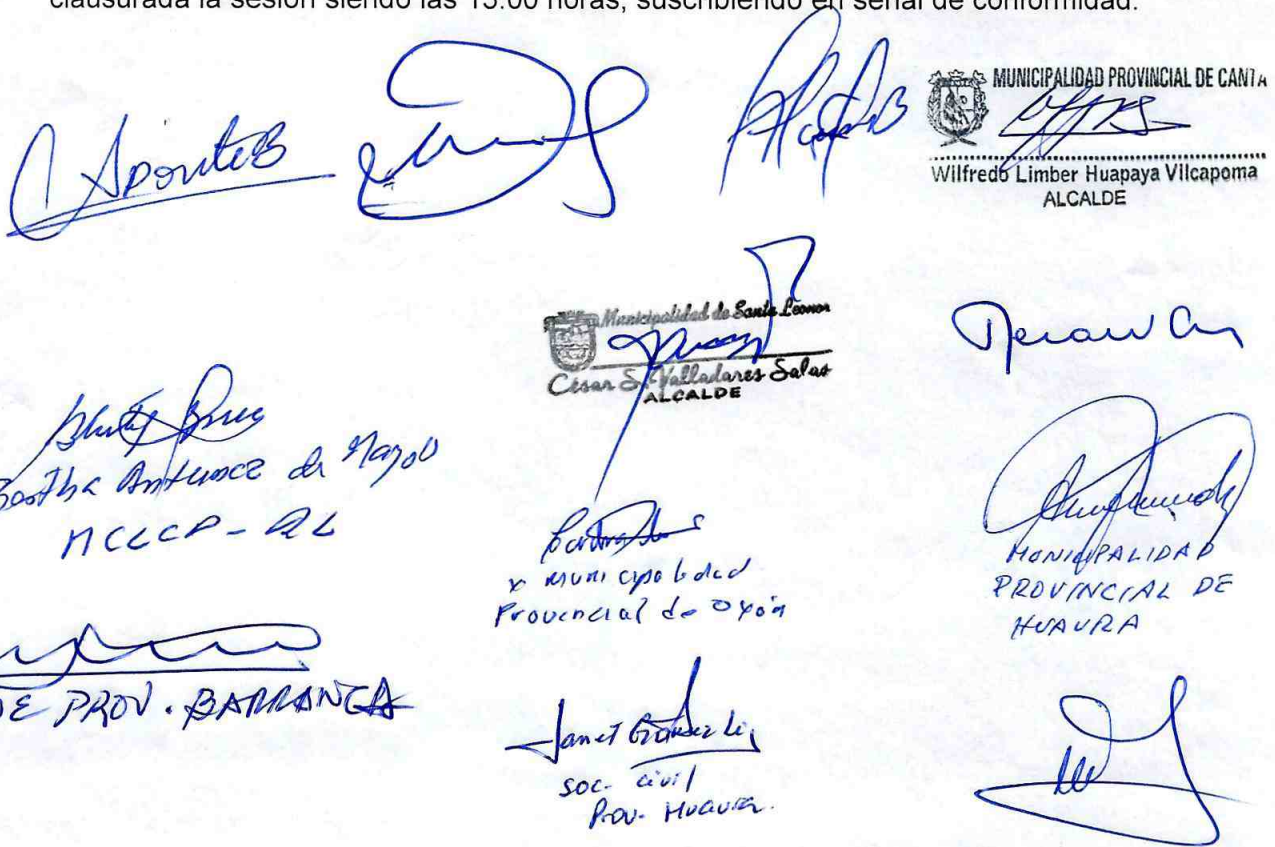 clausurada la sesión siendo las 13:00 horas, suscribiendo en señal de conformidad.
AponteB
MUNICIPALIDAD PROVINCIAL DE CANTA
Wilfredo Limber Huapaya Vilcapoma
ALCALDE
Municipalidad de Santa Leonor
César S. Valladares Salas
ALCALDE
Antunez de Mayolo
MCLCP - RL
x Municipalidad
Provincial de Oyón
MUNICIPALIDAD
PROVINCIAL DE
HUAURA
DE PROV. BARRANCA
Janet
soc. civil
Prov. Huaura.